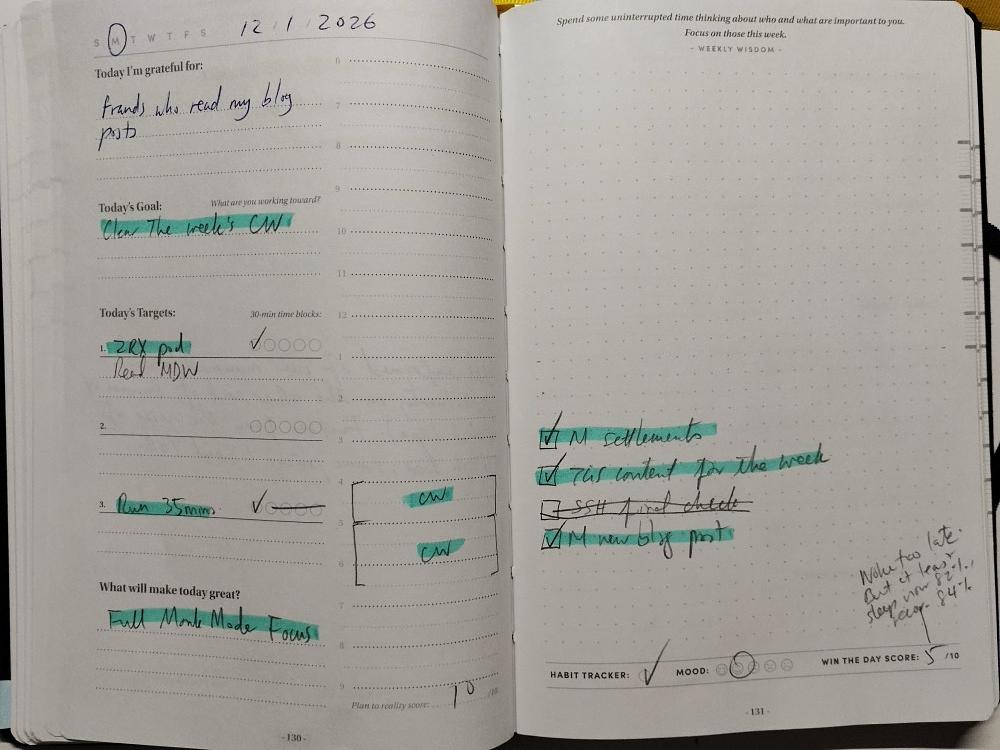 S M T W T F S 12 / 1 / 2026
Today I'm grateful for:
friends who read my blog
posts
Today's Goal: What are you working toward?
Clear The week's CW
Today's Targets: 30-min time blocks:
1. ZRX pod
Read MDW
2.
3. Run 35mins
What will make today great?
Full Monk Mode Focus
- 130 -
6
7
8
9
10
11
12
1
2
3
4
CW
5
CW
6
7
8
9
Plan to reality score: 10 /10
Spend some uninterrupted time thinking about who and what are important to you.
Focus on those this week.
- WEEKLY WISDOM -
M settlements
TGS content for the week
SSH final check
M new blog post
Woke too late.
But at least
sleep now 82%,
84%
HABIT TRACKER: MOOD: WIN THE DAY SCORE: 5 /10
- 131 -